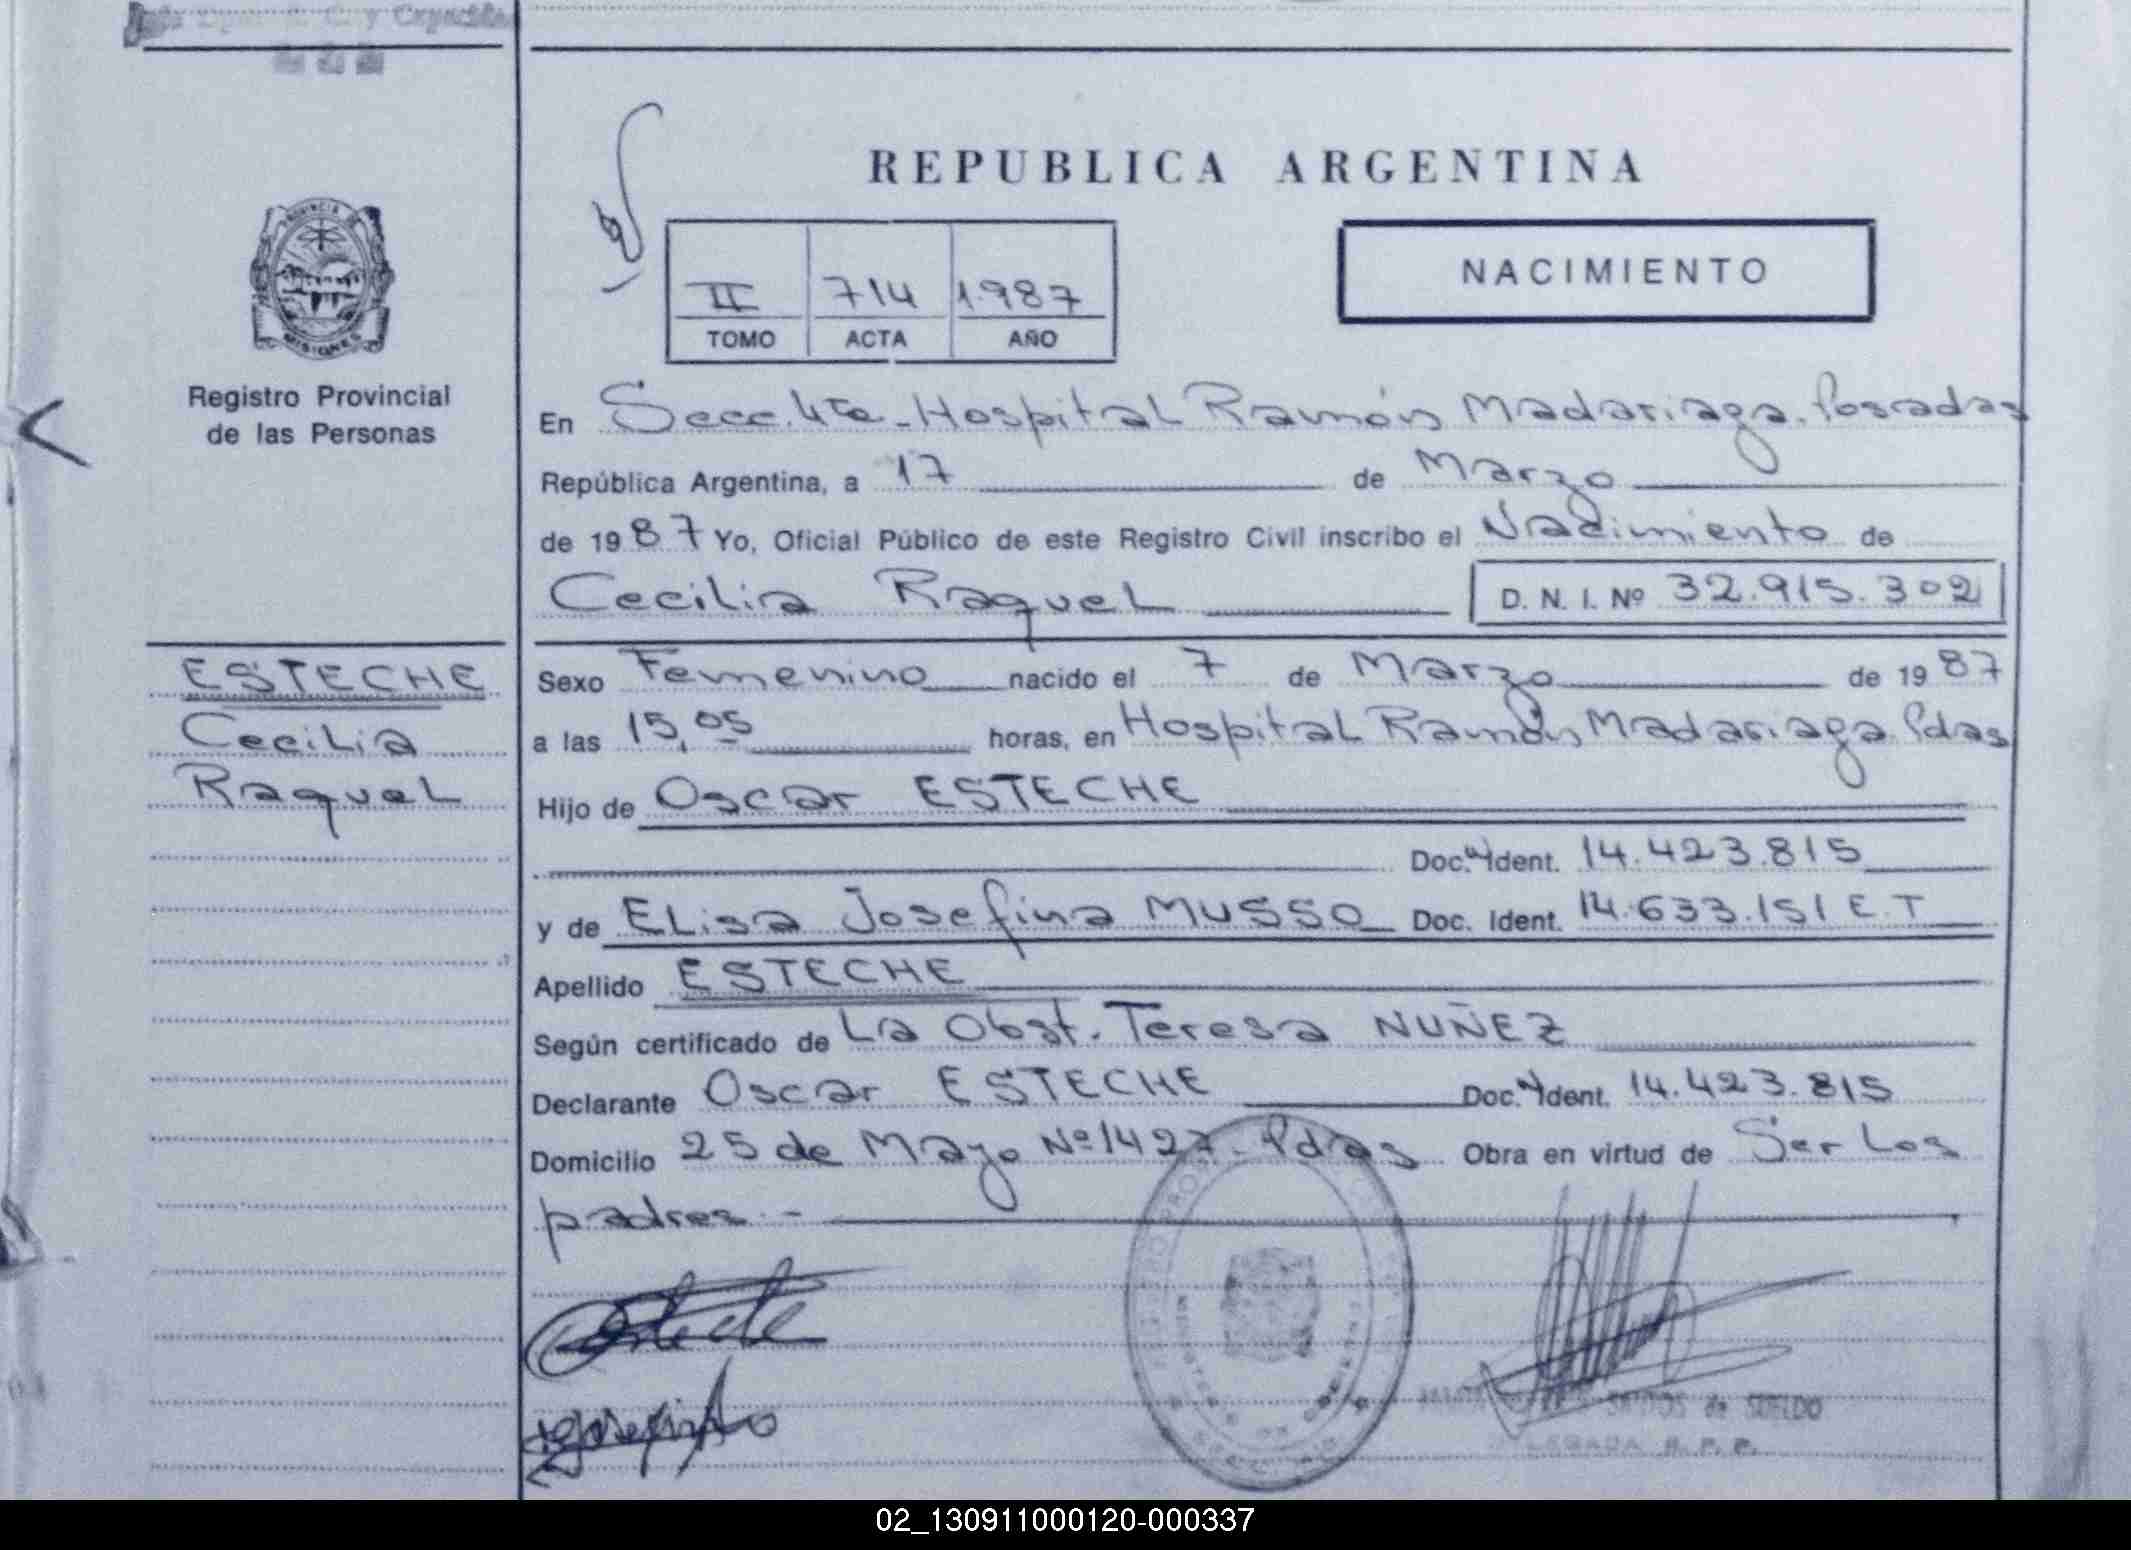 REPUBLICA ARGENTINA
NACIMIENTO
II 714 1.987
TOMO ACTA AÑO
PROVINCIA DE
MISIONES
Registro Provincial
de las Personas
En Secc. 4ta - Hospital Ramón Madariaga. Posadas
República Argentina, a 17 de Marzo
de 1987 Yo, Oficial Público de este Registro Civil inscribo el Nacimiento de
Cecilia Raquel D. N. I. Nº 32.915.302
ESTECHE
Cecilia
Raquel
Sexo Femenino nacido el 7 de Marzo de 1987
a las 15,05 horas, en Hospital Ramón Madariaga. Pdas
Hijo de Oscar ESTECHE
Doc. Ident. 14.423.815
y de Elisa Josefina MUSSO Doc. Ident. 14.633.151 E.T
Apellido ESTECHE
Según certificado de La Obst. Teresa NUÑEZ
Declarante Oscar ESTECHE Doc. Ident. 14.423.815
Domicilio 25 de Mayo Nº 1427 - Pdas Obra en virtud de Ser Los
padres. -
SANTOS de SUELDO
DELEGADA R. P. P.
02_130911000120-000337